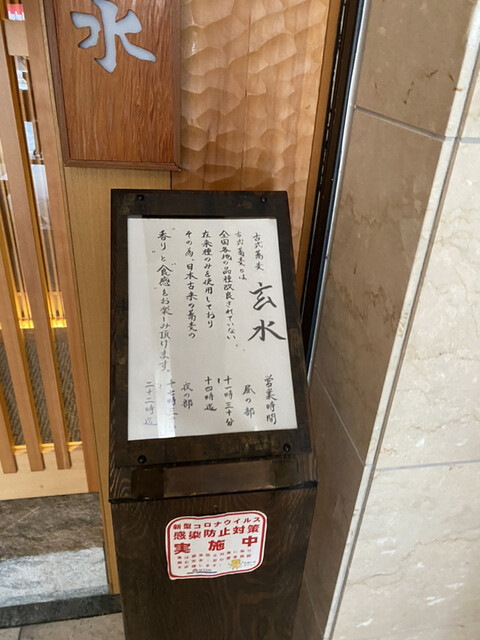 水
古式蕎麦
玄水
古式蕎麦とは
全国各地の品種改良されていない、
在来種のみを使用しており
その為、日本古来の蕎麦の
香りと食感をお楽しみ頂けます。
営業時間
昼の部
十一時三十分
十四時迄
夜の部
二十二時迄
新型コロナウイルス
感染防止対策
実施中